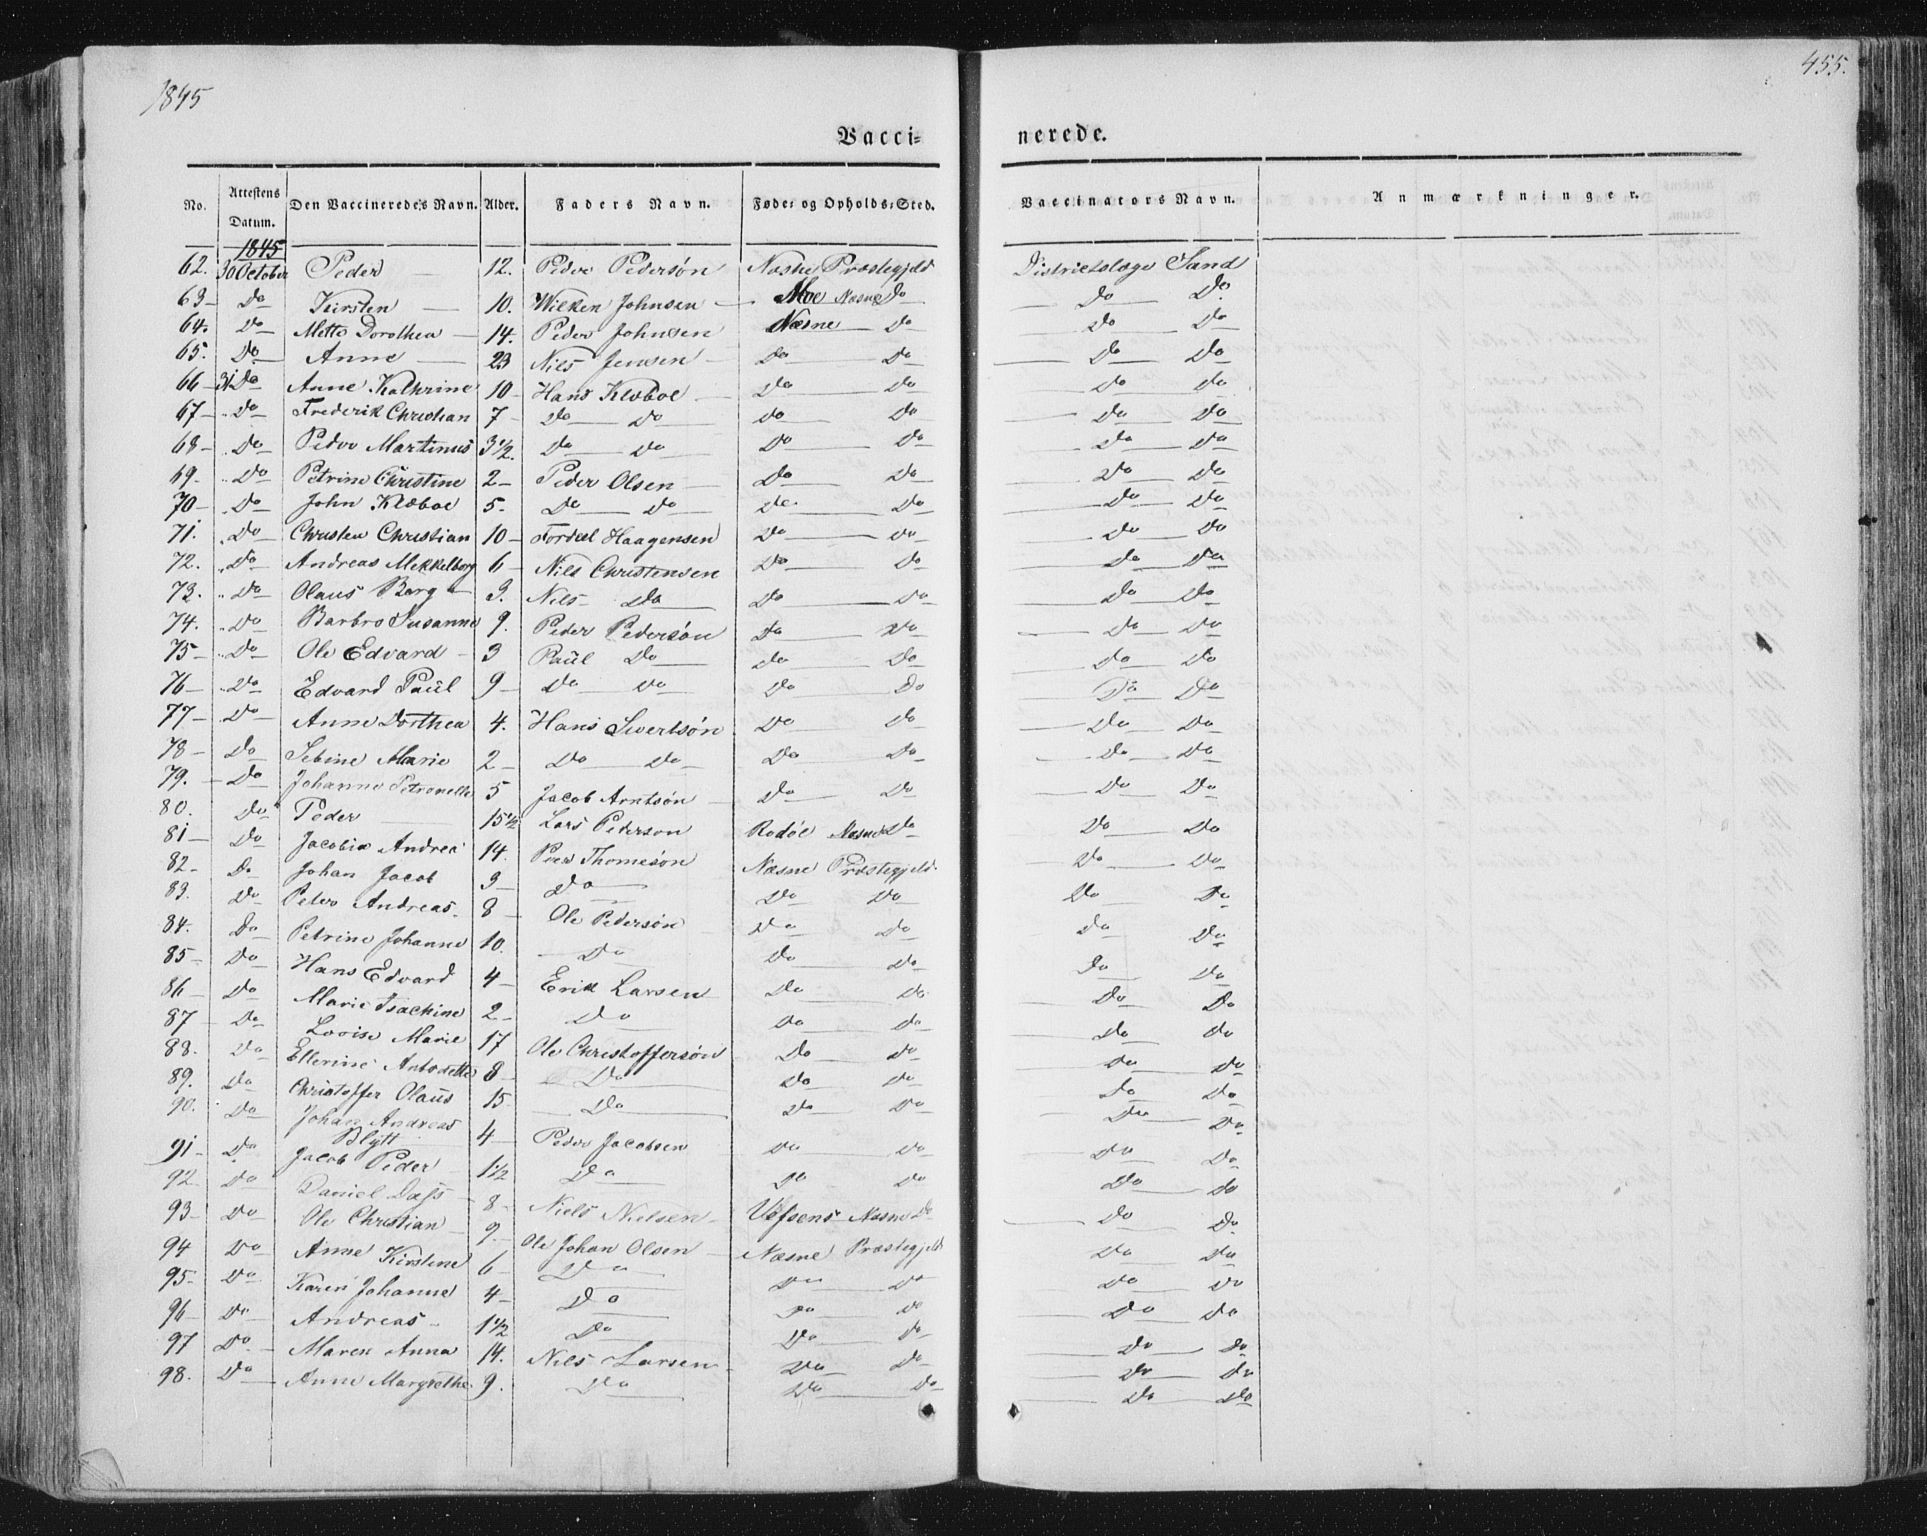 1845
455.
Vacci-
nerede.
No. Attestens Datum. Den Vaccineredes Navn. Alder. Faders Navn. Føde- og Opholds-Sted. Vaccinators Navn. Anmærkninger.
1845
62. 30 October Peder 12. Peder Pedersøn Næsne Præstegjeld Districtslæge Sand
63- Do Kirsten 10. Wilken Johnsen Moe Næsne Do Do Do
64. Do Mette Dorothea 14. Peder Johnsen Næsne Do Do Do
65. Do Anne 23 Nils Jensen Do Do Do Do
66- 31 Do Anne Kathrine 10- Hans Klæboe Do Do Do Do
67- Do Frederik Christian 7- Do Do Do Do Do Do
68- Do Peder Martinus 3 1/2. Do Do Do Do Do Do
69. Do Petrine Christine 2- Peder Olsen Do Do Do Do
70- Do John Klæboe 5. Do Do Do Do Do Do
71. Do Christen Christian 10- Haagensen Do Do Do Do
72. Do Andreas Mekkelborg 6- Nils Christensen Do Do Do Do
73. Do Olaus Borg 3. Nils Do Do Do Do Do
74. Do Barbro Susanne 9. Peder Pedersøn Do Do Do Do
75- Do Ole Edvard 3 Paul Do Do Do Do Do
76- Do Edvard Paul 9- Do Do Do Do Do Do
77- Do Anne Dorthea 4. Hans Sivertsøn Do Do Do Do
78- Do Sebine Marie 2- Do Do Do Do Do Do
79. Do Johanne Petronelle 5 Jacob Arntsøn Do Do Do Do
80. Do Peder 15 1/2 Lars Pederson Rodøe Næsne Do Do Do
81- Do Jacobia Andrea 14. Thomesøn Næsne Præstegjeld. Do Do
82- Do Johan Jacob 3- Do Do Do Do Do
83. Do Peter Andreas. 8- Ole Pedersøn Do Do Do Do
84. Do Petrine Johanne 10. Do Do Do Do Do
85- Do Hans Edvard 4- Erik Larsen Do Do Do Do
86- Do Marie Isachine 2- Do Do Do Do Do
87- Do Lovise Marie 17 Ole Christoffersøn Do Do Do Do
88. Do Ellerine Antonette 8- Do Do Do Do Do
89. Do Christoffer Olaus 15 Do Do Do Do Do
90. Do Johan Andreas Blytt 4- Peder Jacobsen Do Do Do Do
91- Do Jacob Peder 1 1/2 Do Do Do Do Do
92. Do Daniel Dass 8- Niels Nielsen Vefsens Næsne Do Do Do
93- Do Ole Christian 9. Ole Johan Olsen Næsne Præstegjeld Do Do
94 Do Anne Kirstine 6- Do Do Do Do Do
95- Do Karen Johanne 4- Do Do Do Do Do
96- Do Andreas 1 1/2 Do Do Do Do Do
97 Do Maren Anna 14. Nils Larsen Do Do Do Do
98. Do Anne Margrethe 9. Do Do Do Do Do